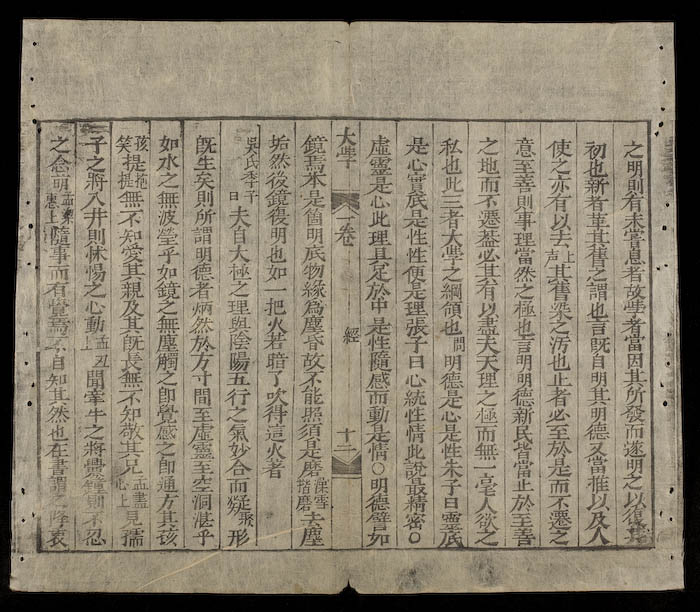 之明則有未嘗息者故學者當因其所發而遂明之以復其
初也新者革其舊之謂也言既自明其明德又當推以及人
使之亦有以去上聲其舊染之汚也止者必至於是而不遷之
意至善則事理當然之極也言明明德新民皆當止於至善
之地而不遷盖必其有以盡夫天理之極而無一毫人欲之
私也此三者大學之綱領也問明德是心是性朱子曰靈底
是心實底是性性便是理張子曰心統性情此說最精密○
虛靈是心此理具足於中是性隨感而動是情○明德譬如
大學 一卷 經 十二
鏡焉本是箇明底物緣為塵昏故不能照須是磨澡雪揩磨去塵
垢然後鏡復明也如一把火若暗了吹得這火着
吳氏季子曰夫自大極之理與陰陽五行之氣妙合而凝聚形
既生矣則所謂明德者炳然於方寸間至虛靈至空洞湛乎
如水之無波瑩乎如鏡之無塵觸之即覺感之即通方其孩
孩笑提抱提無不知愛其親及其既長無不知敬其兄孟盡心上見孺
子之將入井則怵惕之心動孟丑上聞牽牛之將釁鐘則不忍
之念萌孟梁惠上隨事而有覺焉不自知其然也在書謂之降衷